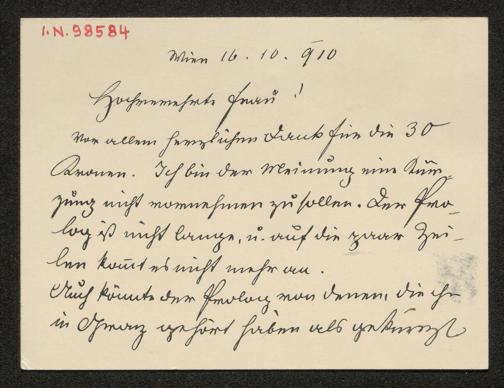 I.N. 98584
Wien 16. 10. 910
Hochverehrte Frau!
Vor allem herzlichen Dank für die 30
Kronen. Ich bin der Meinung eine Kür-
zung nicht vornehmen zu sollen. Der Pro-
log ist nicht lange, u. auf die paar Zei-
len kommt es nicht mehr an.
Auch könnte der Prolog von denen, die ihn
in Graz gehört haben als gekürzt